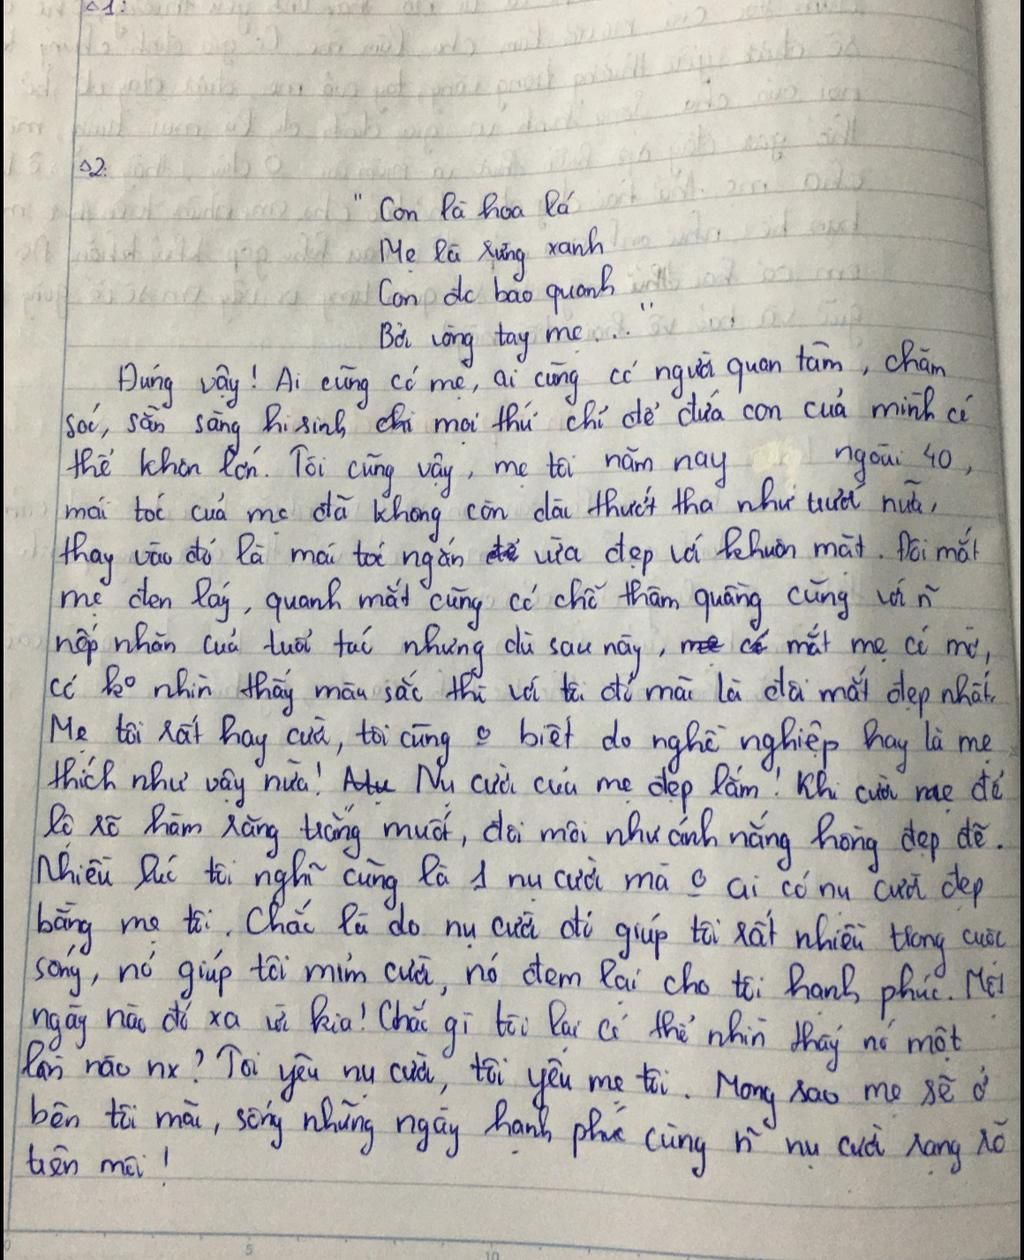 △1:
△2:
" Con là hoa lá
Mẹ là rừng xanh
Con đc bao quanh
Bởi vòng tay mẹ... "
Đúng vậy! Ai cũng có mẹ, ai cũng có người quan tâm, chăm
sóc, sẵn sàng hi sinh mọi thứ chỉ để đứa con của mình có
thể khôn lớn. Tôi cũng vậy, mẹ tôi năm nay ngoài 40,
mái tóc của mẹ đã không còn dài thướt tha như trước nữa,
thay vào đó là mái tóc ngắn vừa đẹp với khuôn mặt. Đôi mắt
mẹ đen láy, quanh mắt cũng có chỗ thâm quầng cùng với n~
nếp nhăn của tuổi tác nhưng dù sau này, mắt mẹ có mờ,
có ko nhìn thấy màu sắc thì với tôi đó mãi là đôi mắt đẹp nhất.
Mẹ tôi rất hay cười, tôi cũng o biết do nghề nghiệp hay là mẹ
thích như vậy nữa! Nụ cười của mẹ đẹp lắm! Khi cười mẹ để
lộ rõ hàm răng trắng muốt, đôi môi như ánh nắng hồng đẹp đẽ.
Nhiều lúc tôi nghĩ cũng là 1 nụ cười mà o ai có nụ cười đẹp
bằng mẹ tôi. Chắc là do nụ cười đó giúp tôi rất nhiều trong cuộc
sống, nó giúp tôi mỉm cười, nó đem lại cho tôi hạnh phúc. Một
ngày nào đó xa vời kia! Chắc gì tôi lại có thể nhìn thấy nó một
lần nào nx? Tôi yêu nụ cười, tôi yêu mẹ tôi. Mong sao mẹ sẽ ở
bên tôi mãi, sống những ngày hạnh phúc cùng n~ nụ cười rạng rỡ
trên môi!
0 5 10